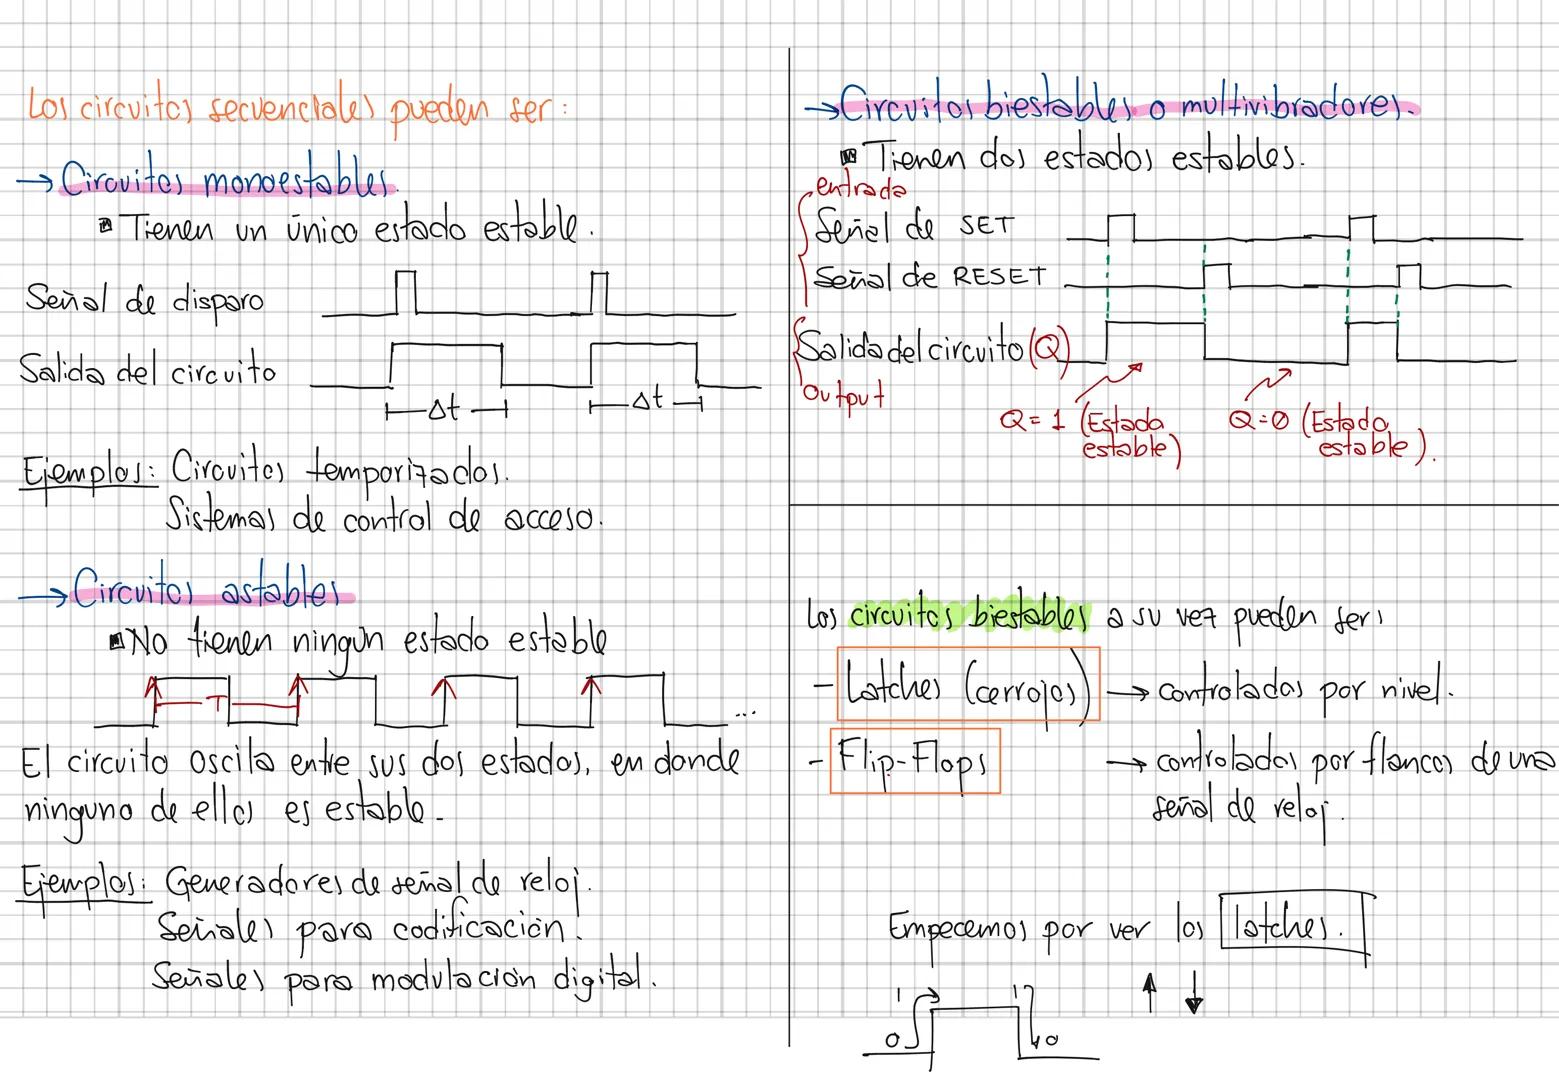 Los circuitos secuenciales pueden ser:
→ Circuitos monoestables.
Tienen un único estado estable.
Señal de disparo
Salida del circuito
Δt
Δt
Ejemplos: Circuitos temporizados.
Sistemas de control de acceso.
→ Circuitos astables
No tienen ningún estado estable
T
...
El circuito oscila entre sus dos estados, en donde
ninguno de ellos es estable.
Ejemplos: Generadores de señal de reloj.
Señales para codificación.
Señales para modulación digital.
→ Circuitos biestables o multivibradores.
Tienen dos estados estables.
entrada
Señal de SET
Señal de RESET
Salida del circuito (Q)
output
Q = 1 (Estado
estable)
Q = 0 (Estado
estable).
Los circuitos biestables a su vez pueden ser:
- Latches (cerrojos) → controlados por nivel.
- Flip-Flops → controlados por flancos de una
señal de reloj.
Empecemos por ver los latches.
↑ ↓
1 1
0 0